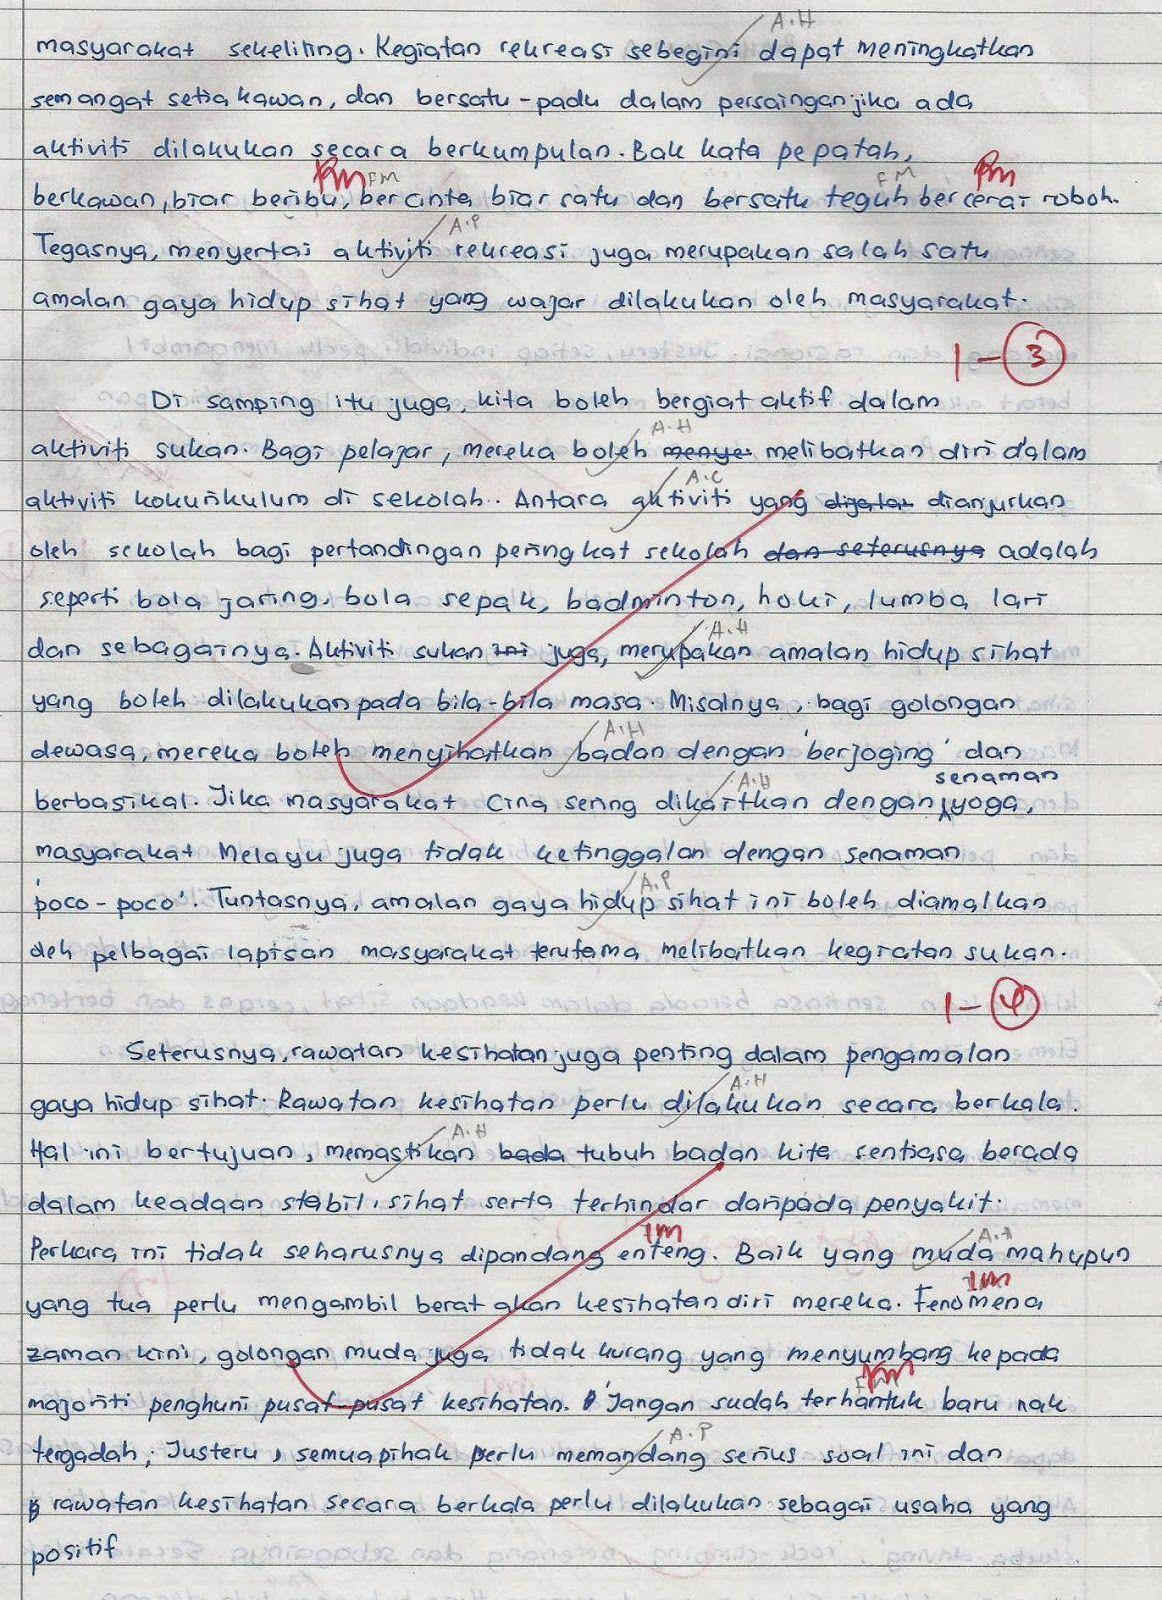 A.H
masyarakat sekeliling. Kegiatan rekreasi sebegini dapat meningkatkan
semangat setia kawan, dan bersatu-padu dalam persaingan jika ada
aktiviti dilakukan secara berkumpulan. Bak kata pepatah,
FM FM FM FM
berkawan, biar beribu, bercinta biar satu dan bersatu teguh bercerai roboh.
A.P
Tegasnya, menyertai aktiviti rekreasi juga merupakan salah satu
amalan gaya hidup sihat yang wajar dilakukan oleh masyarakat.
1 - 3
Di samping itu juga, kita boleh bergiat aktif dalam
A.H
aktiviti sukan. Bagi pelajar, mereka boleh menye melibatkan diri dalam
A.C
aktiviti kokurikulum di sekolah. Antara aktiviti yang dianjurkan
oleh sekolah bagi pertandingan peringkat sekolah dan seterusnya adalah
seperti bola jaring, bola sepak, badminton, hoki, lumba lari
A.H
dan sebagainya. Aktiviti sukan ini juga, merupakan amalan hidup sihat
yang boleh dilakukan pada bila-bila masa. Misalnya, bagi golongan
A.H
dewasa, mereka boleh menyihatkan badan dengan 'berjoging' dan
A.H senaman
berbasikal. Jika masyarakat Cina sering dikaitkan dengan yoga,
masyarakat Melayu juga tidak ketinggalan dengan senaman
A.P
'poco-poco'. Tuntasnya, amalan gaya hidup sihat ini boleh diamalkan
oleh pelbagai lapisan masyarakat terutama melibatkan kegiatan sukan.
1 - 4
Seterusnya, rawatan kesihatan juga penting dalam pengamalan
A.H
gaya hidup sihat. Rawatan kesihatan perlu dilakukan secara berkala.
A.H
Hal ini bertujuan, memastikan bada tubuh badan kita sentiasa berada
dalam keadaan stabil, sihat serta terhindar daripada penyakit.
IM A.H
Perkara ini tidak seharusnya dipandang enteng. Baik yang muda mahupun
IM
yang tua perlu mengambil berat akan kesihatan diri mereka. Fenomena
zaman kini, golongan muda juga tidak kurang yang menyumbang kepada
FM FM
majoriti penghuni pusat-pusat kesihatan. 'Jangan sudah terhantuk baru nak
A.P
tergadah; Justeru, semua pihak perlu memandang serius soal ini dan
rawatan kesihatan secara berkala perlu dilakukan sebagai usaha yang
positif